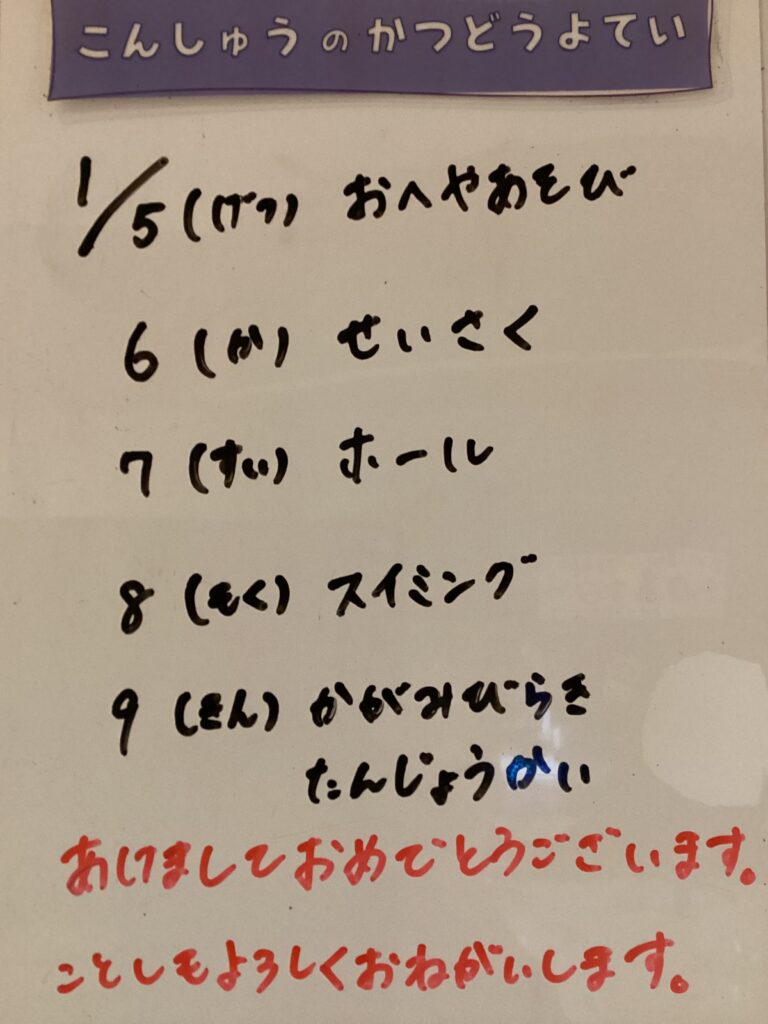 こんしゅうのかつどうよてい
1/5(げつ) おへやあそび
6(か) せいさく
7(すい) ホール
8(もく) スイミング
9(きん) かがみびらき
たんじょうかい
あけましておめでとうございます。
ことしもよろしくおねがいします。